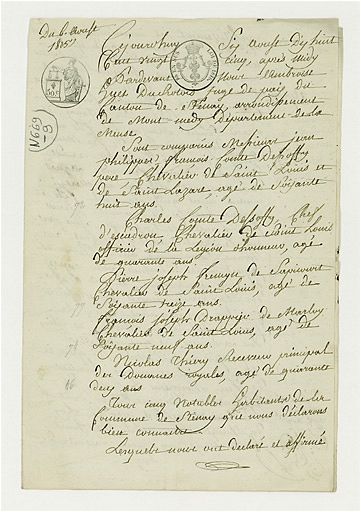 Du 6. Aoust
1825
N669
-9
Cejourdhuy Six Aoust Dix huit
Cent vingt cinq, après midy
Pardevant Nous Ambroise
Juge de paix du
Canton de Stenay, arrondissement
de Mont medy Département de la
Meuse
Sont comparus Messieurs jean
philippe françois Comte Dessoffy
père Chevalier de Saint Louis et
de Saint Lazare agé de Soixante
huit ans.
Charles Comte Dessoffy Chef
d'escadron Chevalier de Saint Louis
officier de la Légion d'honneur, agé
de quarante ans.
Pierre joseph de
Chevalier de Saint Louis, agé de
Soixante treize ans.
françois joseph de
Chevalier de Saint Louis, agé de
Soixante neuf ans.
Nicolas Thiery Receveur principal
des Douanes royales, agé de quarante
deux ans
Tous cinq Notables habitants de la
Commune de Stenay que nous déclarons
bien connaitre
Lesquels nous ont declaré et affirmé